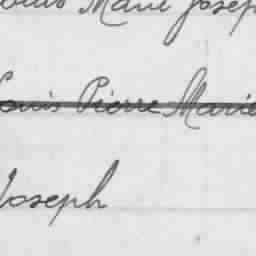 Louis Marie Joseph
Louis Pierre Marie
Joseph